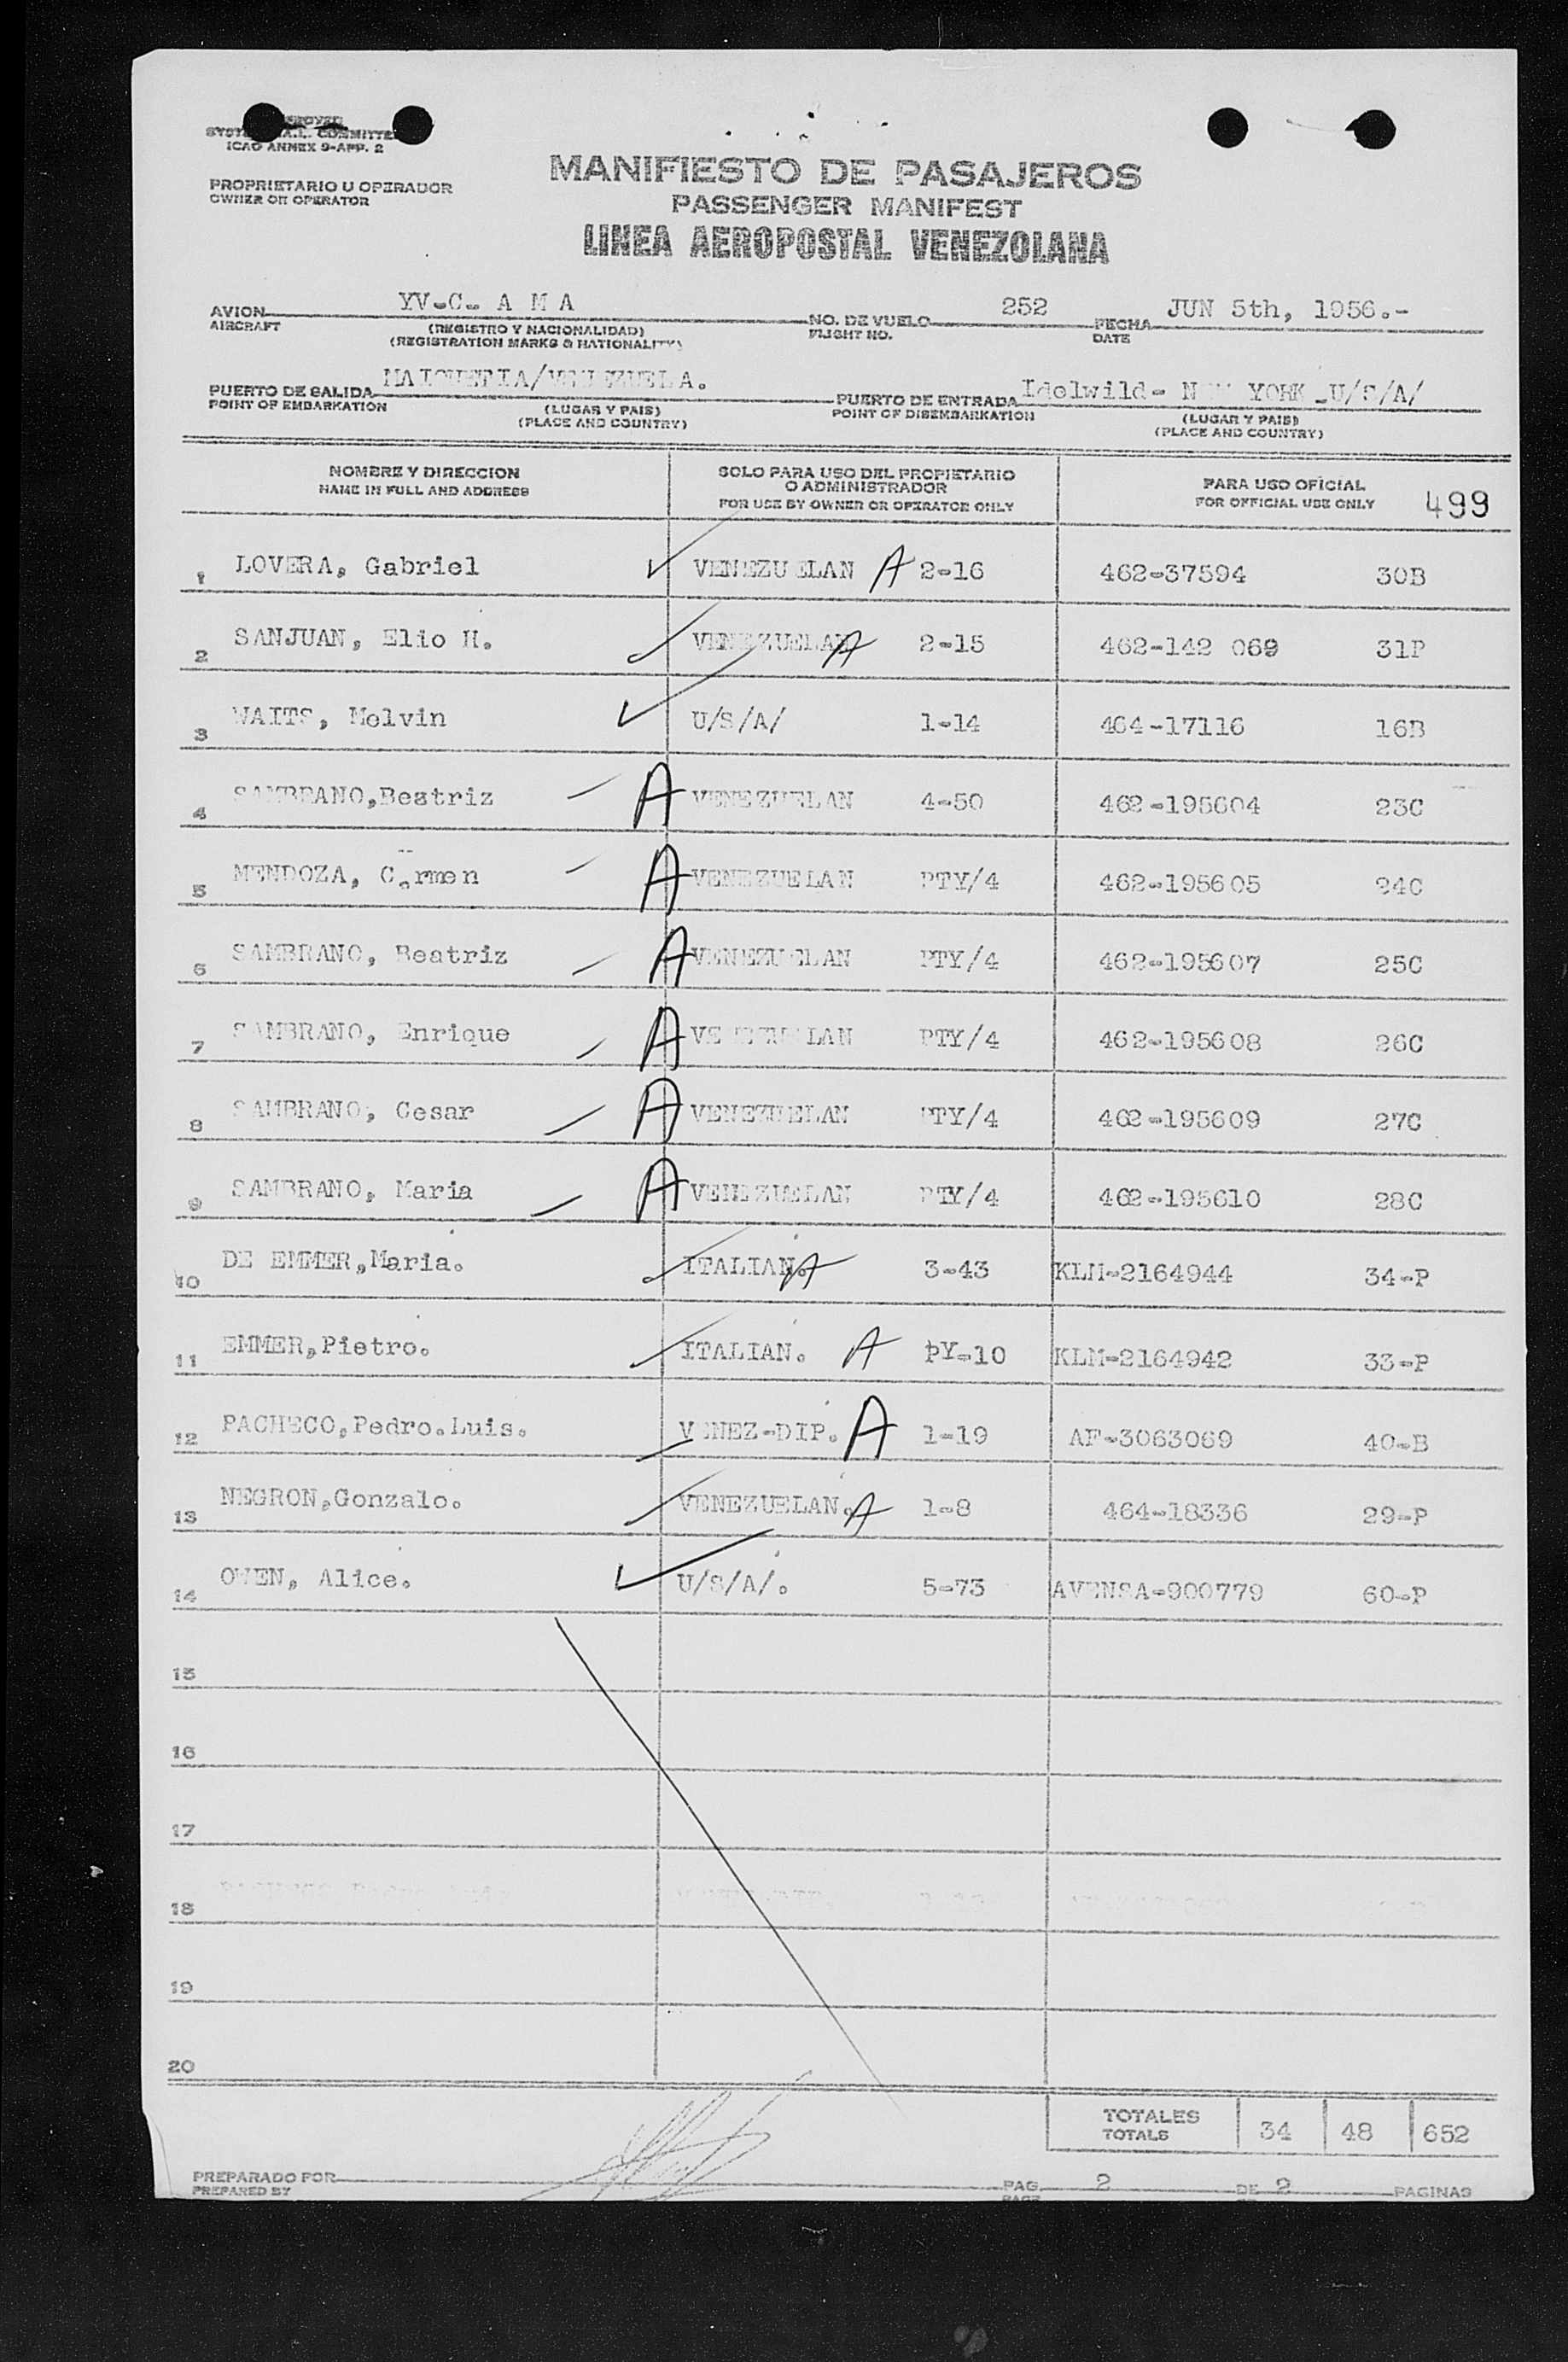 ICAO ANNEX 9-APP. 2
PROPRIETARIO U OPERADOR
OWNER OR OPERATOR
MANIFIESTO DE PASAJEROS
PASSENGER MANIFEST
LINEA AEROPOSTAL VENEZOLANA
AVION YV-C- A M A NO. DE VUELO 252 FECHA JUN 5th, 1956.-
AIRCRAFT (REGISTRO Y NACIONALIDAD) FLIGHT NO. DATE
(REGISTRATION MARKS & NATIONALITY)
PUERTO DE SALIDA MAIQUETIA/VENEZUELA. PUERTO DE ENTRADA Idelwild- NEW YORK -U/S/A/
POINT OF EMBARKATION (LUGAR Y PAIS) POINT OF DISEMBARKATION (LUGAR Y PAIS)
(PLACE AND COUNTRY) (PLACE AND COUNTRY)
NOMBRE Y DIRECCION SOLO PARA USO DEL PROPIETARIO O ADMINISTRADOR PARA USO OFICIAL
NAME IN FULL AND ADDRESS FOR USE BY OWNER OR OPERATOR ONLY FOR OFFICIAL USE ONLY 499
1 LOVERA, Gabriel VENEZUELAN A 2-16 462-37594 30B
2 SANJUAN, Elio H. VENEZUELAN A 2-15 462-142 069 31P
3 WAITS, Melvin U/S/A/ 1-14 464-17116 16B
4 SAMBRANO,Beatriz A VENEZUELAN 4-50 462-195604 23C
5 MENDOZA, Carmen A VENEZUELAN PTY/4 462-195605 24C
6 SAMBRANO, Beatriz A VENEZUELAN PTY/4 462-195607 25C
7 SAMBRANO, Enrique A VENEZUELAN PTY/4 462-195608 26C
8 SAMBRANO, Cesar A VENEZUELAN PTY/4 462-195609 27C
9 SAMBRANO, Maria A VENEZUELAN PTY/4 462-195610 28C
10 DE EMMER,Maria. ITALIAN. A 3-43 KLM-2164944 34-P
11 EMMER,Pietro. ITALIAN. A PY-10 KLM-2164942 33-P
12 PACHECO,Pedro.Luis. VENEZ-DIP. A 1-19 AF-3063069 40-B
13 NEGRON,Gonzalo. VENEZUELAN. A 1-8 464-18336 29-P
14 OWEN, Alice. U/S/A/. 5-73 AVENSA-900779 60-P
15
16
17
18
19
20
TOTALES 34 48 652
TOTALS
PREPARADO POR PAG. 2 DE 2 PAGINAS
PREPARED BY